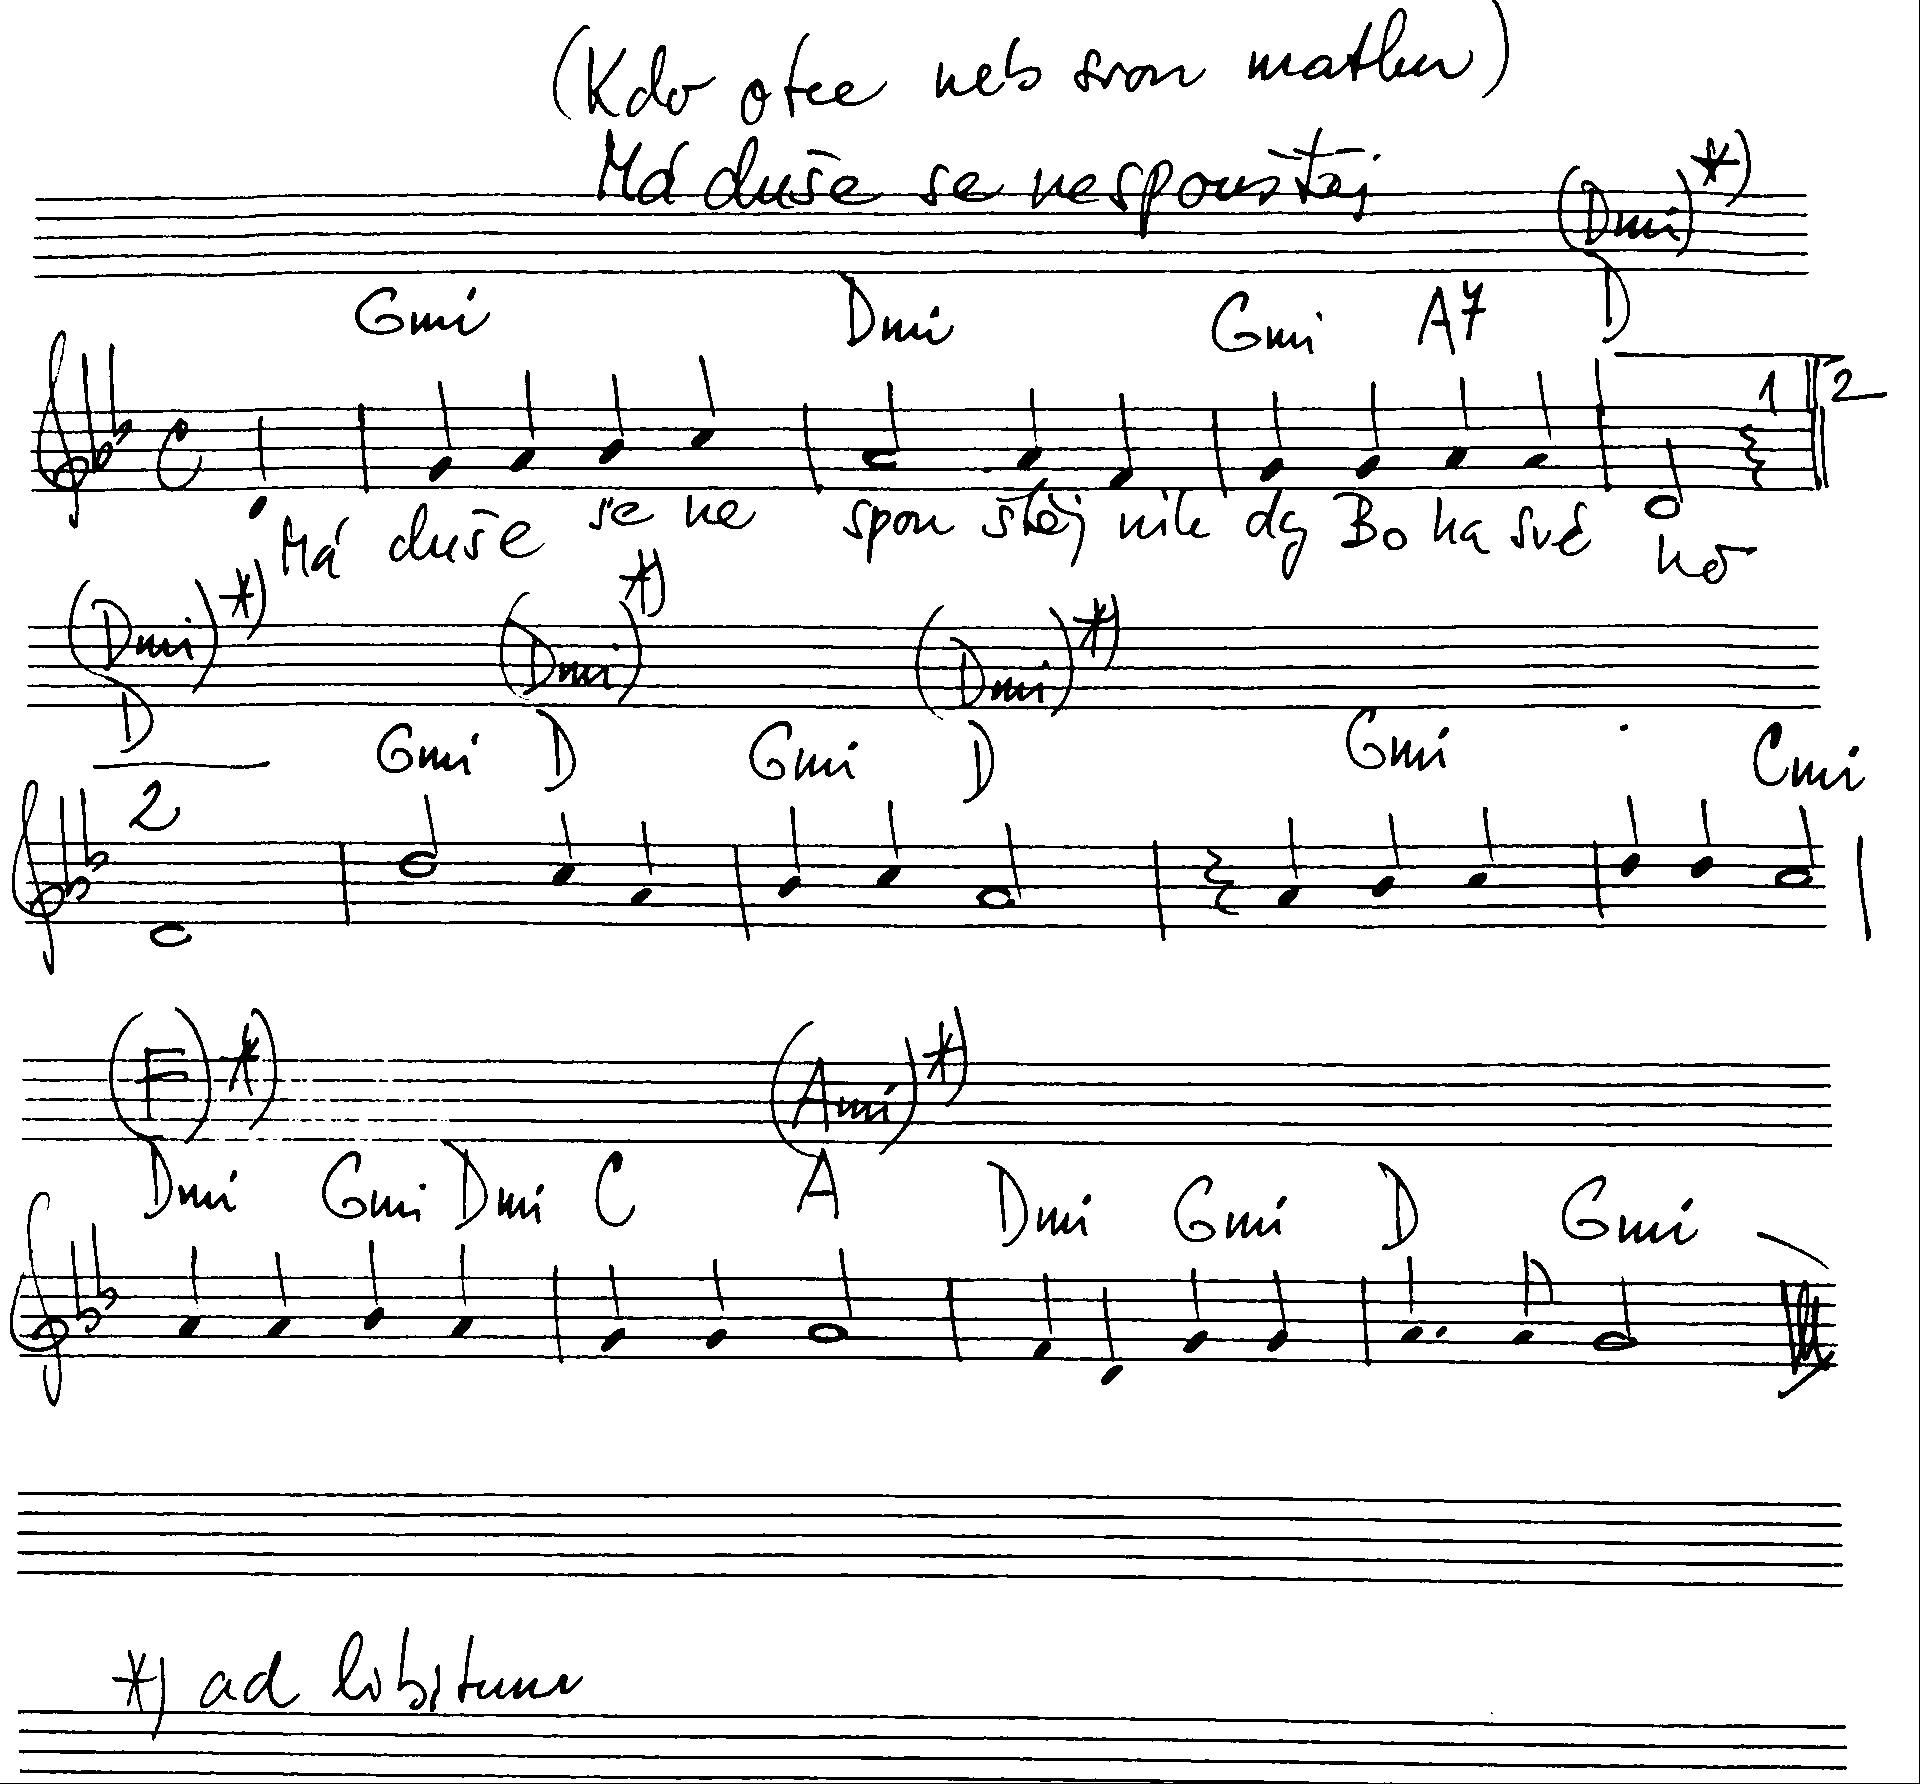 (Kdo otce neb svou matku)
Má duše se nespouštěj
(Dmi) *)
Gmi Dmi Gmi A7 D
1 2
Má duše se ne spou štěj nik dy Bo ha své ho
(Dmi) *) (Dmi) *) (Dmi) *)
D Gmi D Gmi D Gmi Cmi
2
(F) *) (Ami) *)
Dmi Gmi Dmi C A Dmi Gmi D Gmi
*) ad libitum